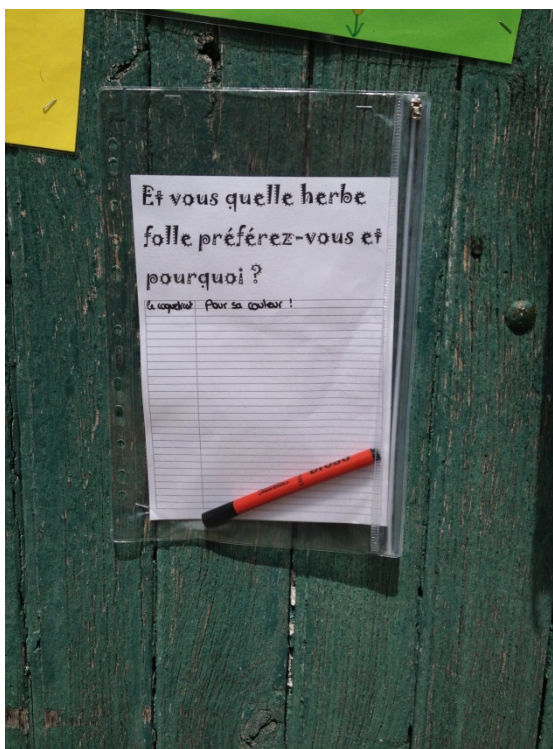 Et vous quelle herbe
folle préférez-vous et
pourquoi ?
Le coquelicot Pour sa couleur !